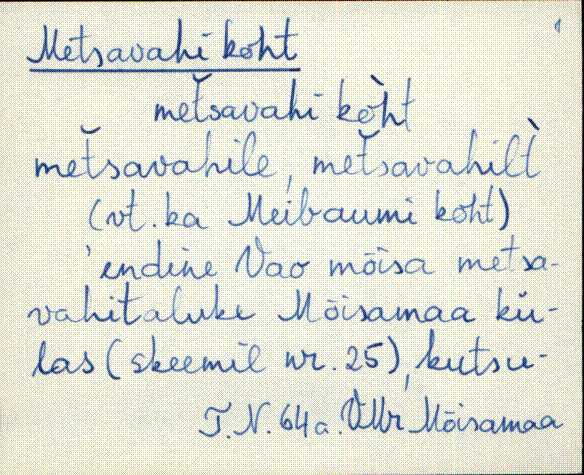 1
Metsavahi koht
metšavahi kò̀ht
metšavahile, metšavahilt̀
(vt. ka Meibaumi koht)
'endine Vao mõisa metsa-
vahitaluke Mõisamaa kü-
las (skeemil nr. 25), kutsu-
T.N. 64 a. VMr Mõisamaa